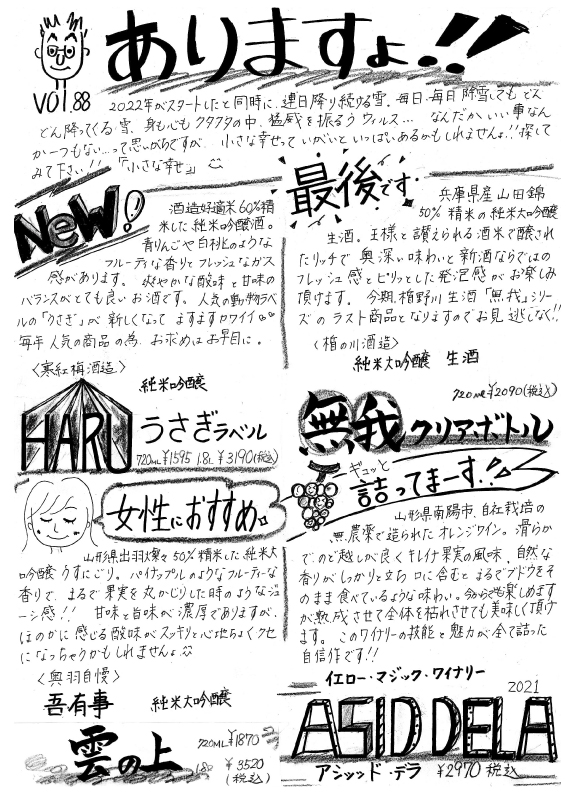 ありますよ.!!
VOl.88
2022年がスタートしたと同時に、連日降り続ける雪。毎日、毎日除雪してもどん
どん降ってくる雪、身も心もクタクタの中、猛威を振るうウィルス… なんだかいい事なん
か一つもない…って思いがちですが、小さな幸せっていがいといっぱいあるかもしれませんよ!!探して
みて下さい!!「小さな幸せ」
NeW!
酒造好適米60%精
米した純米吟醸酒。
青りんごや白桃のような
フルーティな香りとフレッシュなガス
感があります。爽やかな酸味と甘味の
バランスがとても良いお酒です。人気の動物ラベ
ルの「うさぎ」が新しくなってますますカワイイ♡
毎年人気の商品の為、お求めはお早目に。
〈寒紅梅酒造〉
純米吟醸
HARU うさぎラベル
720ml ¥1595 1.8L ¥3190(税込)
最後です
兵庫県産山田錦
50%精米の純米大吟醸
生酒。王様と讃えられる酒米で醸され
たリッチで奥深い味わいと新酒ならではの
フレッシュ感とピリッとした発泡感がお楽しみ
頂けます。今期楯野川生酒「無我」シリー
ズのラスト商品となりますのでお見逃しなく!!
〈楯の川酒造〉
純米大吟醸 生酒
720ml ¥2090(税込)
無我クリアボトル
女性におすすめ。
山形県出羽燦々50%精米した純米大
吟醸うすにごり。パイナップルのようなフルーティーな
香りで、まるで果実を丸かじりした時のようなジュ
ーシ感!! 甘味と旨味が濃厚でありますが、
ほのかに感じる酸味がスッキリと心地よくクセ
になっちゃうかもしれませんよ
〈奥羽自慢〉
吾有事 純米大吟醸
雲の上
720ML ¥1870
1.8L ¥3520
(税込)
ギュッと
詰ってまーす.!!
山形県南陽市、自社栽培の
無農薬で造られたオレンジワイン。滑らか
でのど越しが良くキレイナ果実の風味、自然な
香りがしっかりと立ち口に含むとまるでブドウをそ
のまま食べているような味わい。今からでも楽しめます
が熟成させて全体を枯れさせても美味しく頂け
ます。このワイナリーの技能と魅力が全て詰った
自信作です!!
イエロー・マジック・ワイナリー
2021
ASID DELA
アシッド・デラ ¥2970 税込